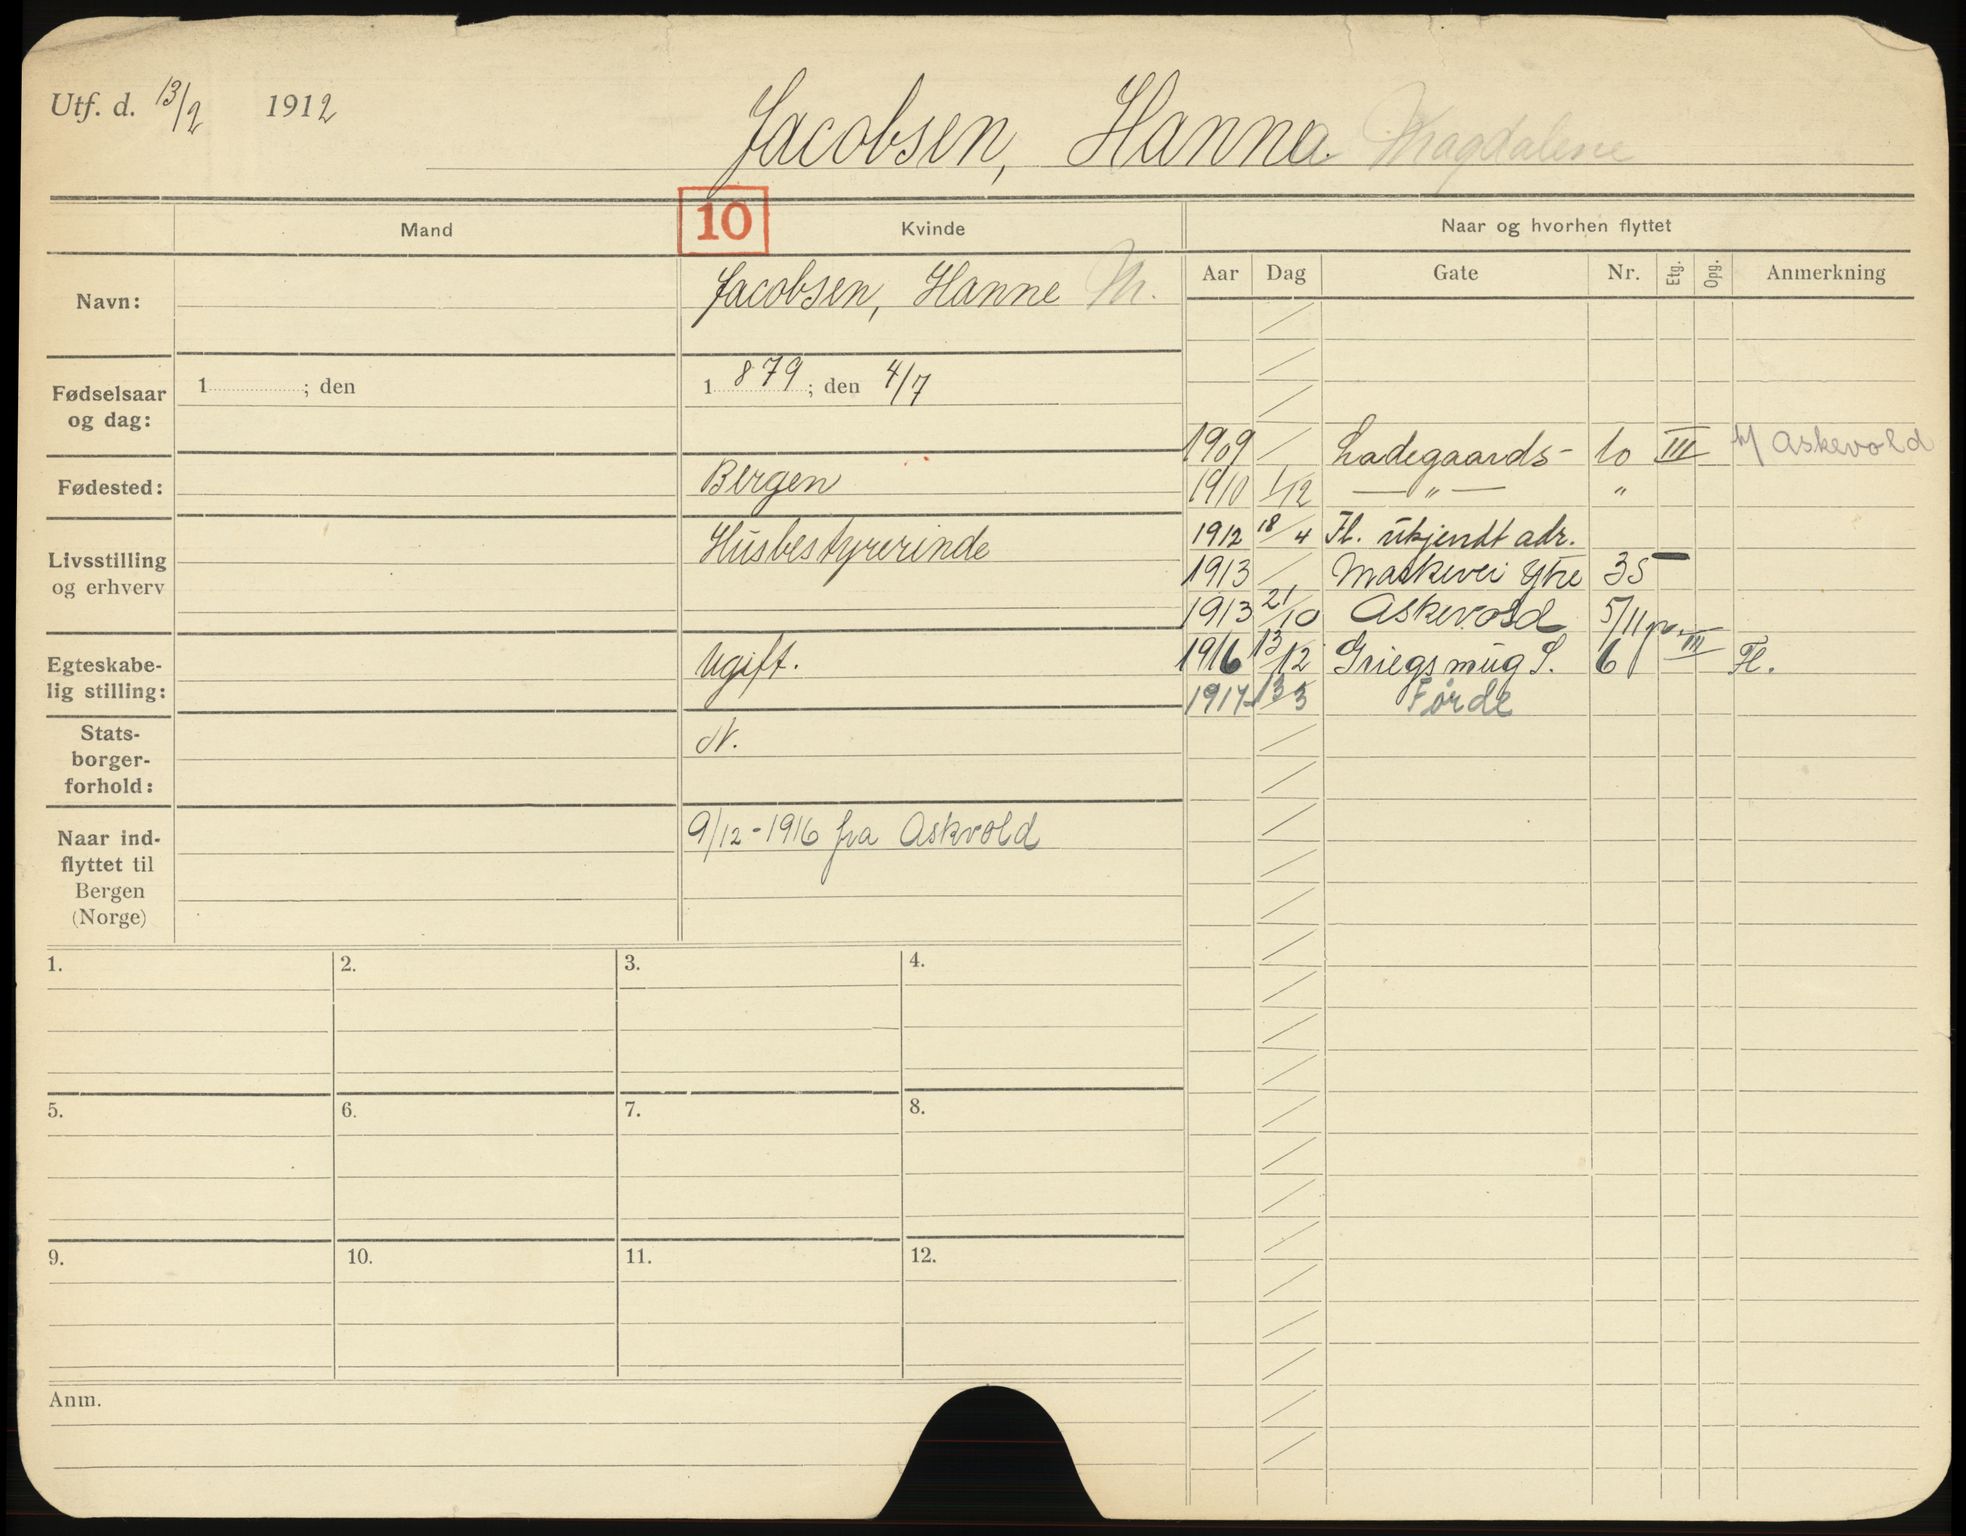 Utf. d. 13/2 1912
Jacobsen, Hanna Magdalene
Mand
10
Kvinde
Naar og hvorhen flyttet
Aar Dag Gate Nr. Etg. Opg. Anmerkning
Navn:
Jacobsen, Hanne M.
Fødselsaar
og dag:
1 ; den
1879; den 4/7
Fødested:
Bergen
Livsstilling
og erhverv
Husbestyrerinde
Egteskabe-
lig stilling:
Ugift.
Stats-
borger-
forhold:
N.
Naar ind-
flyttet til
Bergen
(Norge)
9/12-1916 fra Askvold
1909 / Ladegaards- 10 III t/ Askevold
1910 1/12 — " — "
1912 18/4 Fl. ukjendt adr.
1913 / Maskevei Ytre 35 —
1913 21/10 Askevold 5/11
1916 13/12 Griegsmug S. 6 III Fl.
1917 3/3 Førde
1.
2.
3.
4.
5.
6.
7.
8.
9.
10.
11.
12.
Anm.